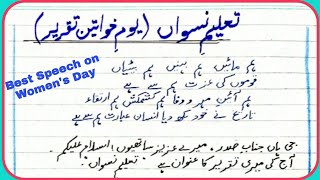 تعلیمِ نسواں (یومِ خواتین تقریر)
Best Speech on
Women's Day
ہم مائیں ہم بہنیں ہم بیٹیاں
قوموں کی عزت ہم سے ہے
تاریخ نے خود لکھ دیا انسان عبارت ہم سے ہے
جی ہاں جنابِ صدر، میرے عزیز ساتھیوں! السلام علیکم
آج کی میری تقریر کا عنوان ہے "تعلیمِ نسواں"